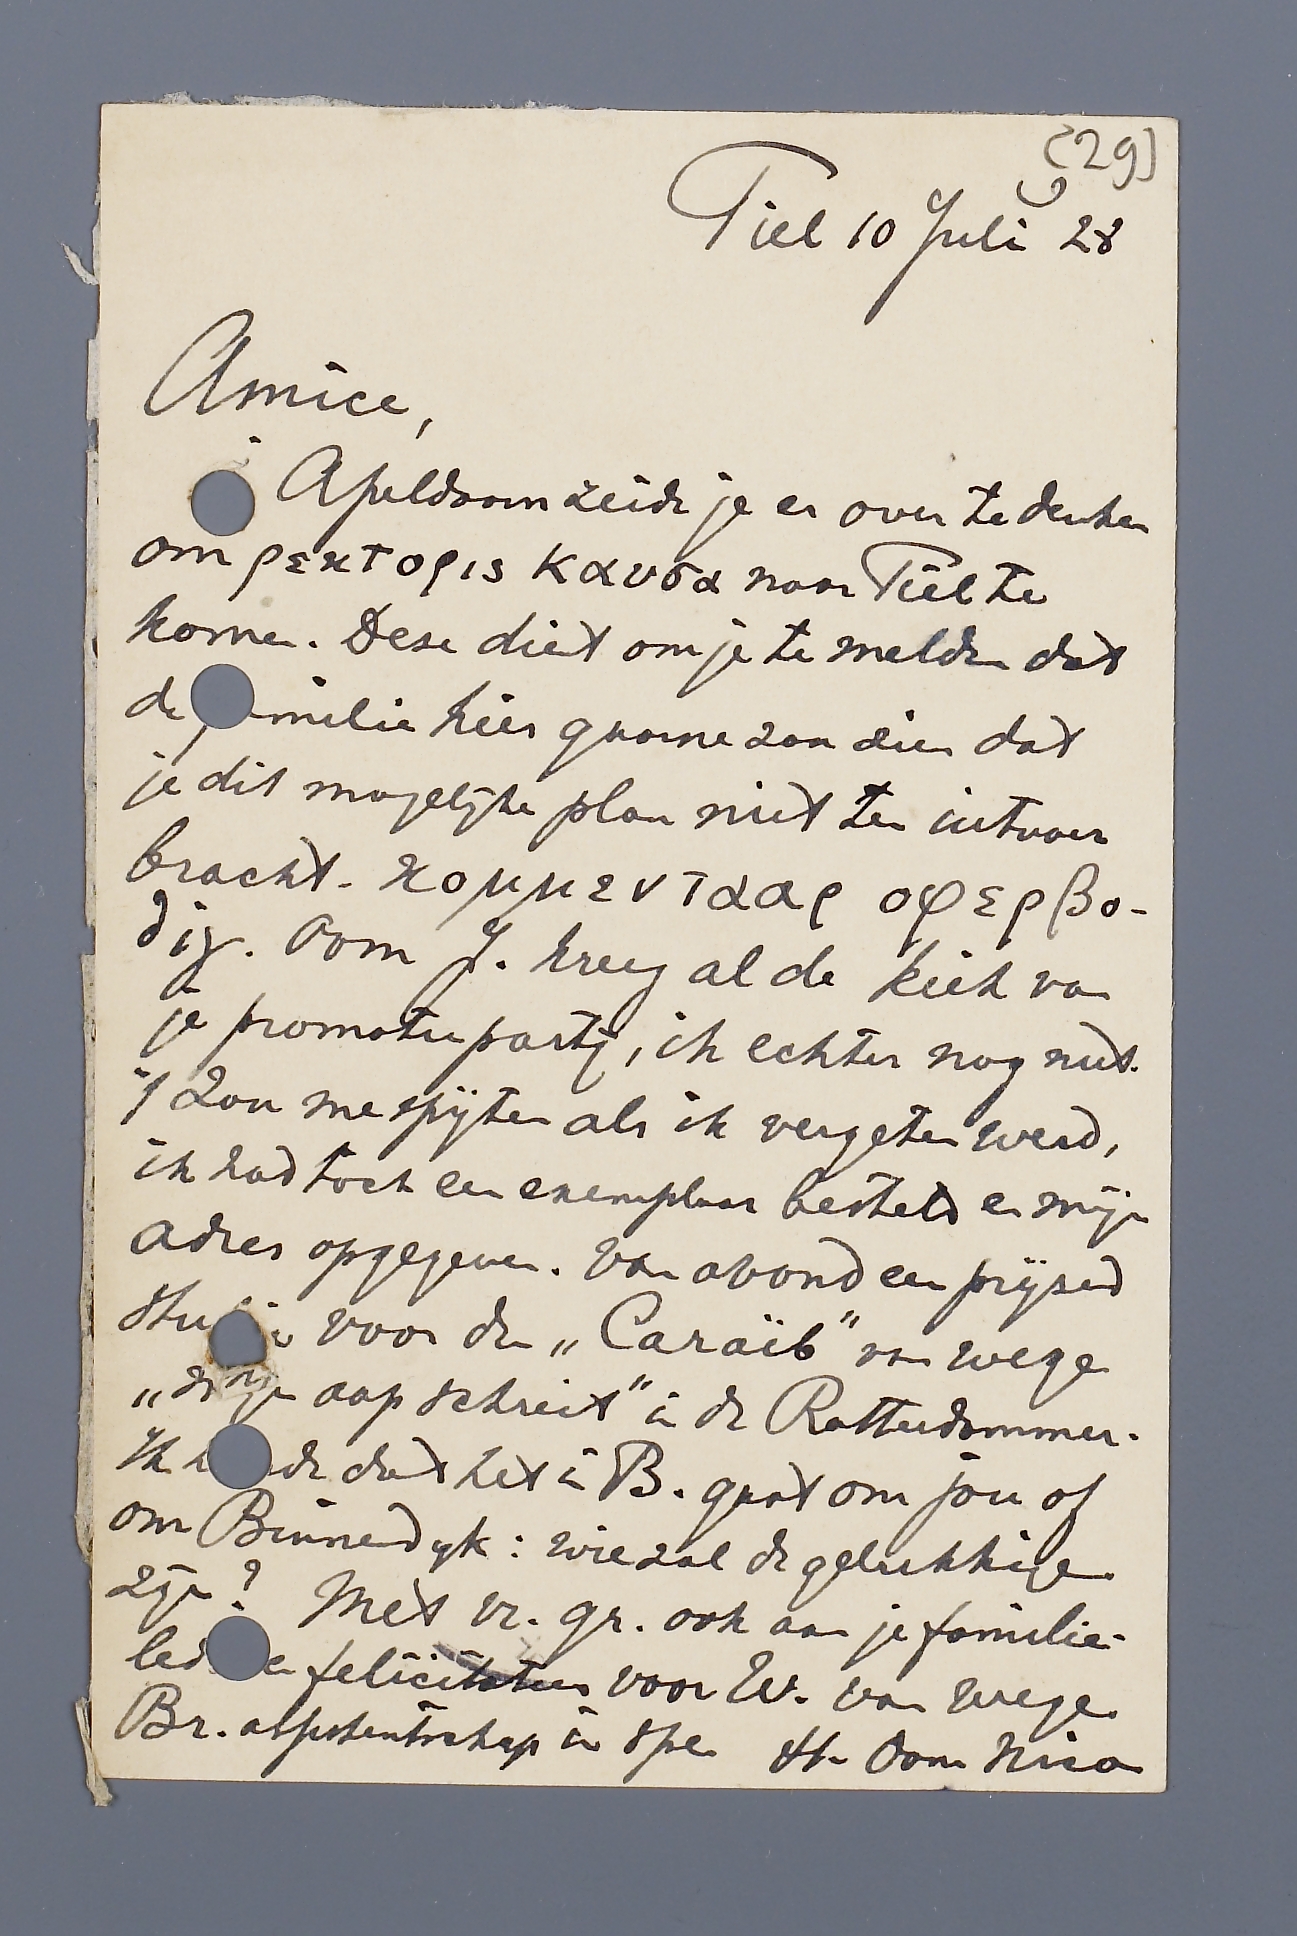 [29]
Tiel 10 Juli 28
Amice,
Apeldoorn zeide je er over te denken
om ρεκτορις καυσα naar Tiel te
komen. Deze dient om je te melden dat
de familie hier gaarne zou zien dat
je dit mogelijke plan niet ten uitvoer
bracht. κομμεντααρ οφερβο-
dig. Oom J. kreeg al de kiek van
je promotiepartij, ik echter nog niet.
't Zou me spijten als ik vergeten werd,
ik had toch een exemplaar besteld en mijn
adres opgegeven. Van avond een prijzend
voor den „Caraïb" van wege
„mijn aap schreit" in de Rotterdammer.
Ik hoorde dat het in B. gaat om jou of
om Binnendyk: wie zal de gelukkige
zijn? Met vr. gr. ook aan je familie-
leden felicitaties voor W. van wege
Br. assistentschap in spe tt. Oom Nico